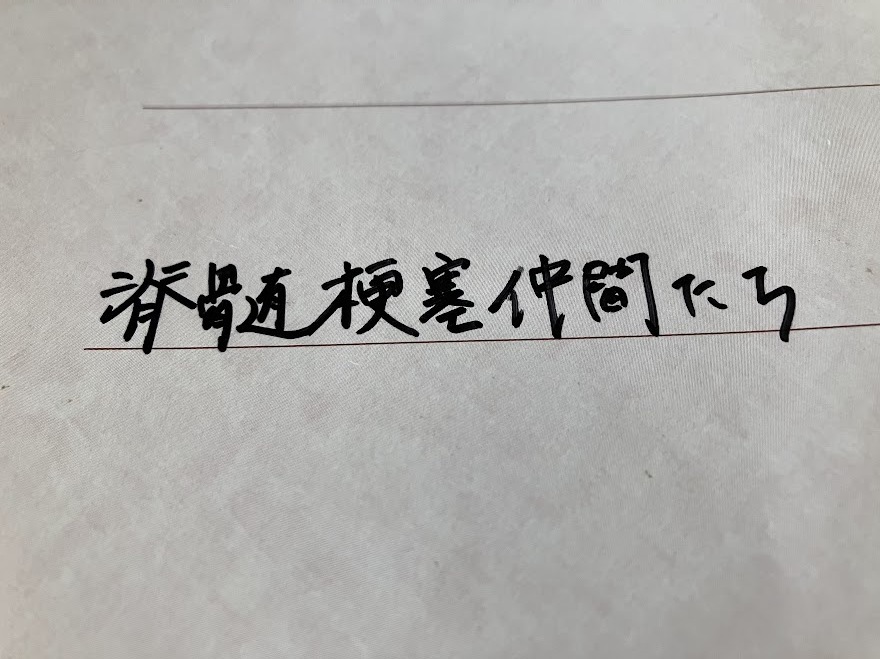 脊髄梗塞仲間たち